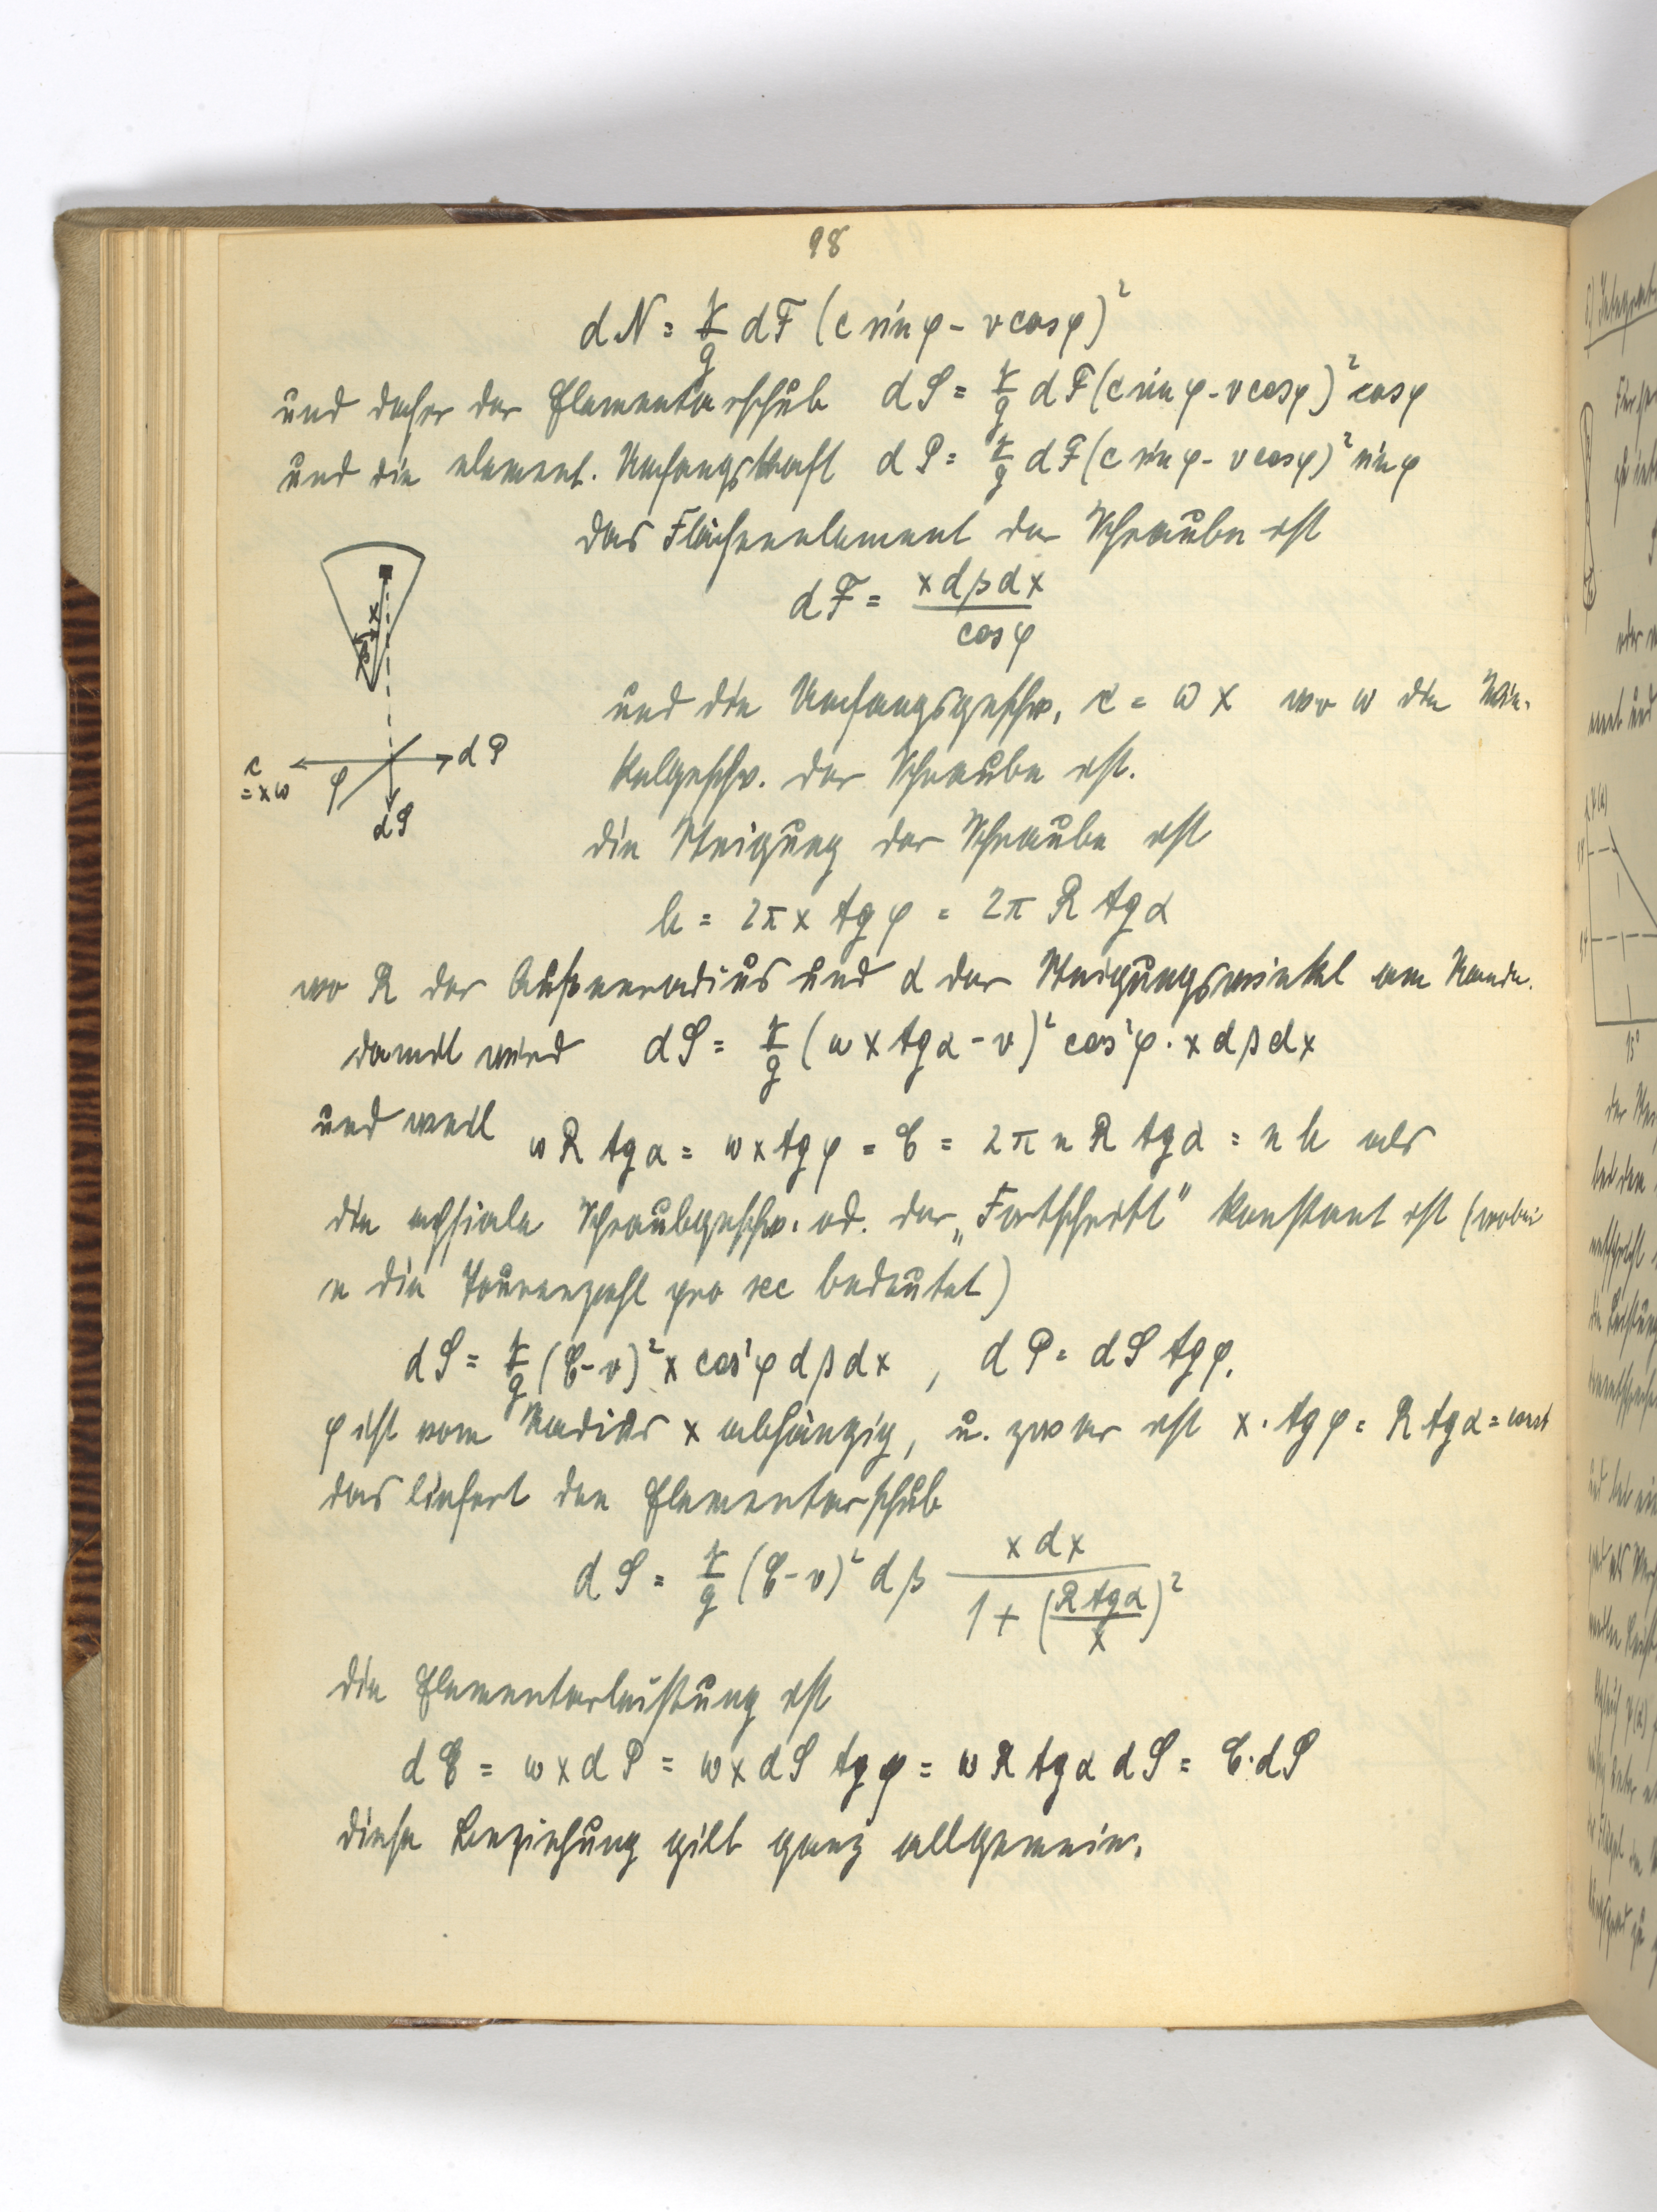 98
dN = γ/g dF (c sin φ - v cos φ)²
und daher der Elementarschub dS = γ/g dF (c sin φ - v cos φ)² cos φ
und die element. Umfangskraft dP = γ/g dF (c sin φ - v cos φ)² sin φ
das Flächenelement der Schraube ist
dF = x dβ dx / cos φ
x
β
c = xω
φ
dP
dS
und die Umfangsgeschw. c = ω x wo ω die Win-
kelgeschw. der Schraube ist.
die Steigung der Schraube ist
h = 2π x tg φ = 2π R tg α
wo R der Außenradius und α der Steigungswinkel am Rande.
damit wird dS = γ/g (ω x tg α - v)² cos²φ · x dβ dx
und weil ω R tg α = ω x tg φ = C = 2π n R tg α = n h als
die achsiale Schraubgeschw. od. der „Fortschritt" konstant ist (wobei
n die Tourenzahl pro sec bedeutet)
dS = γ/g (C - v)² x cos²φ dβ dx , dP = dS tg φ.
φ ist vom Radius x abhängig, u. zwar ist x · tg φ = R tg α = const
das liefert den Elementarschub
dS = γ/g (C - v)² dβ x dx / 1 + (R tg α / x)²
die Elementarleistung ist
dE = ω x dP = ω x dS tg φ = ω R tg α dS = C · dS
diese Beziehung gilt ganz allgemein.